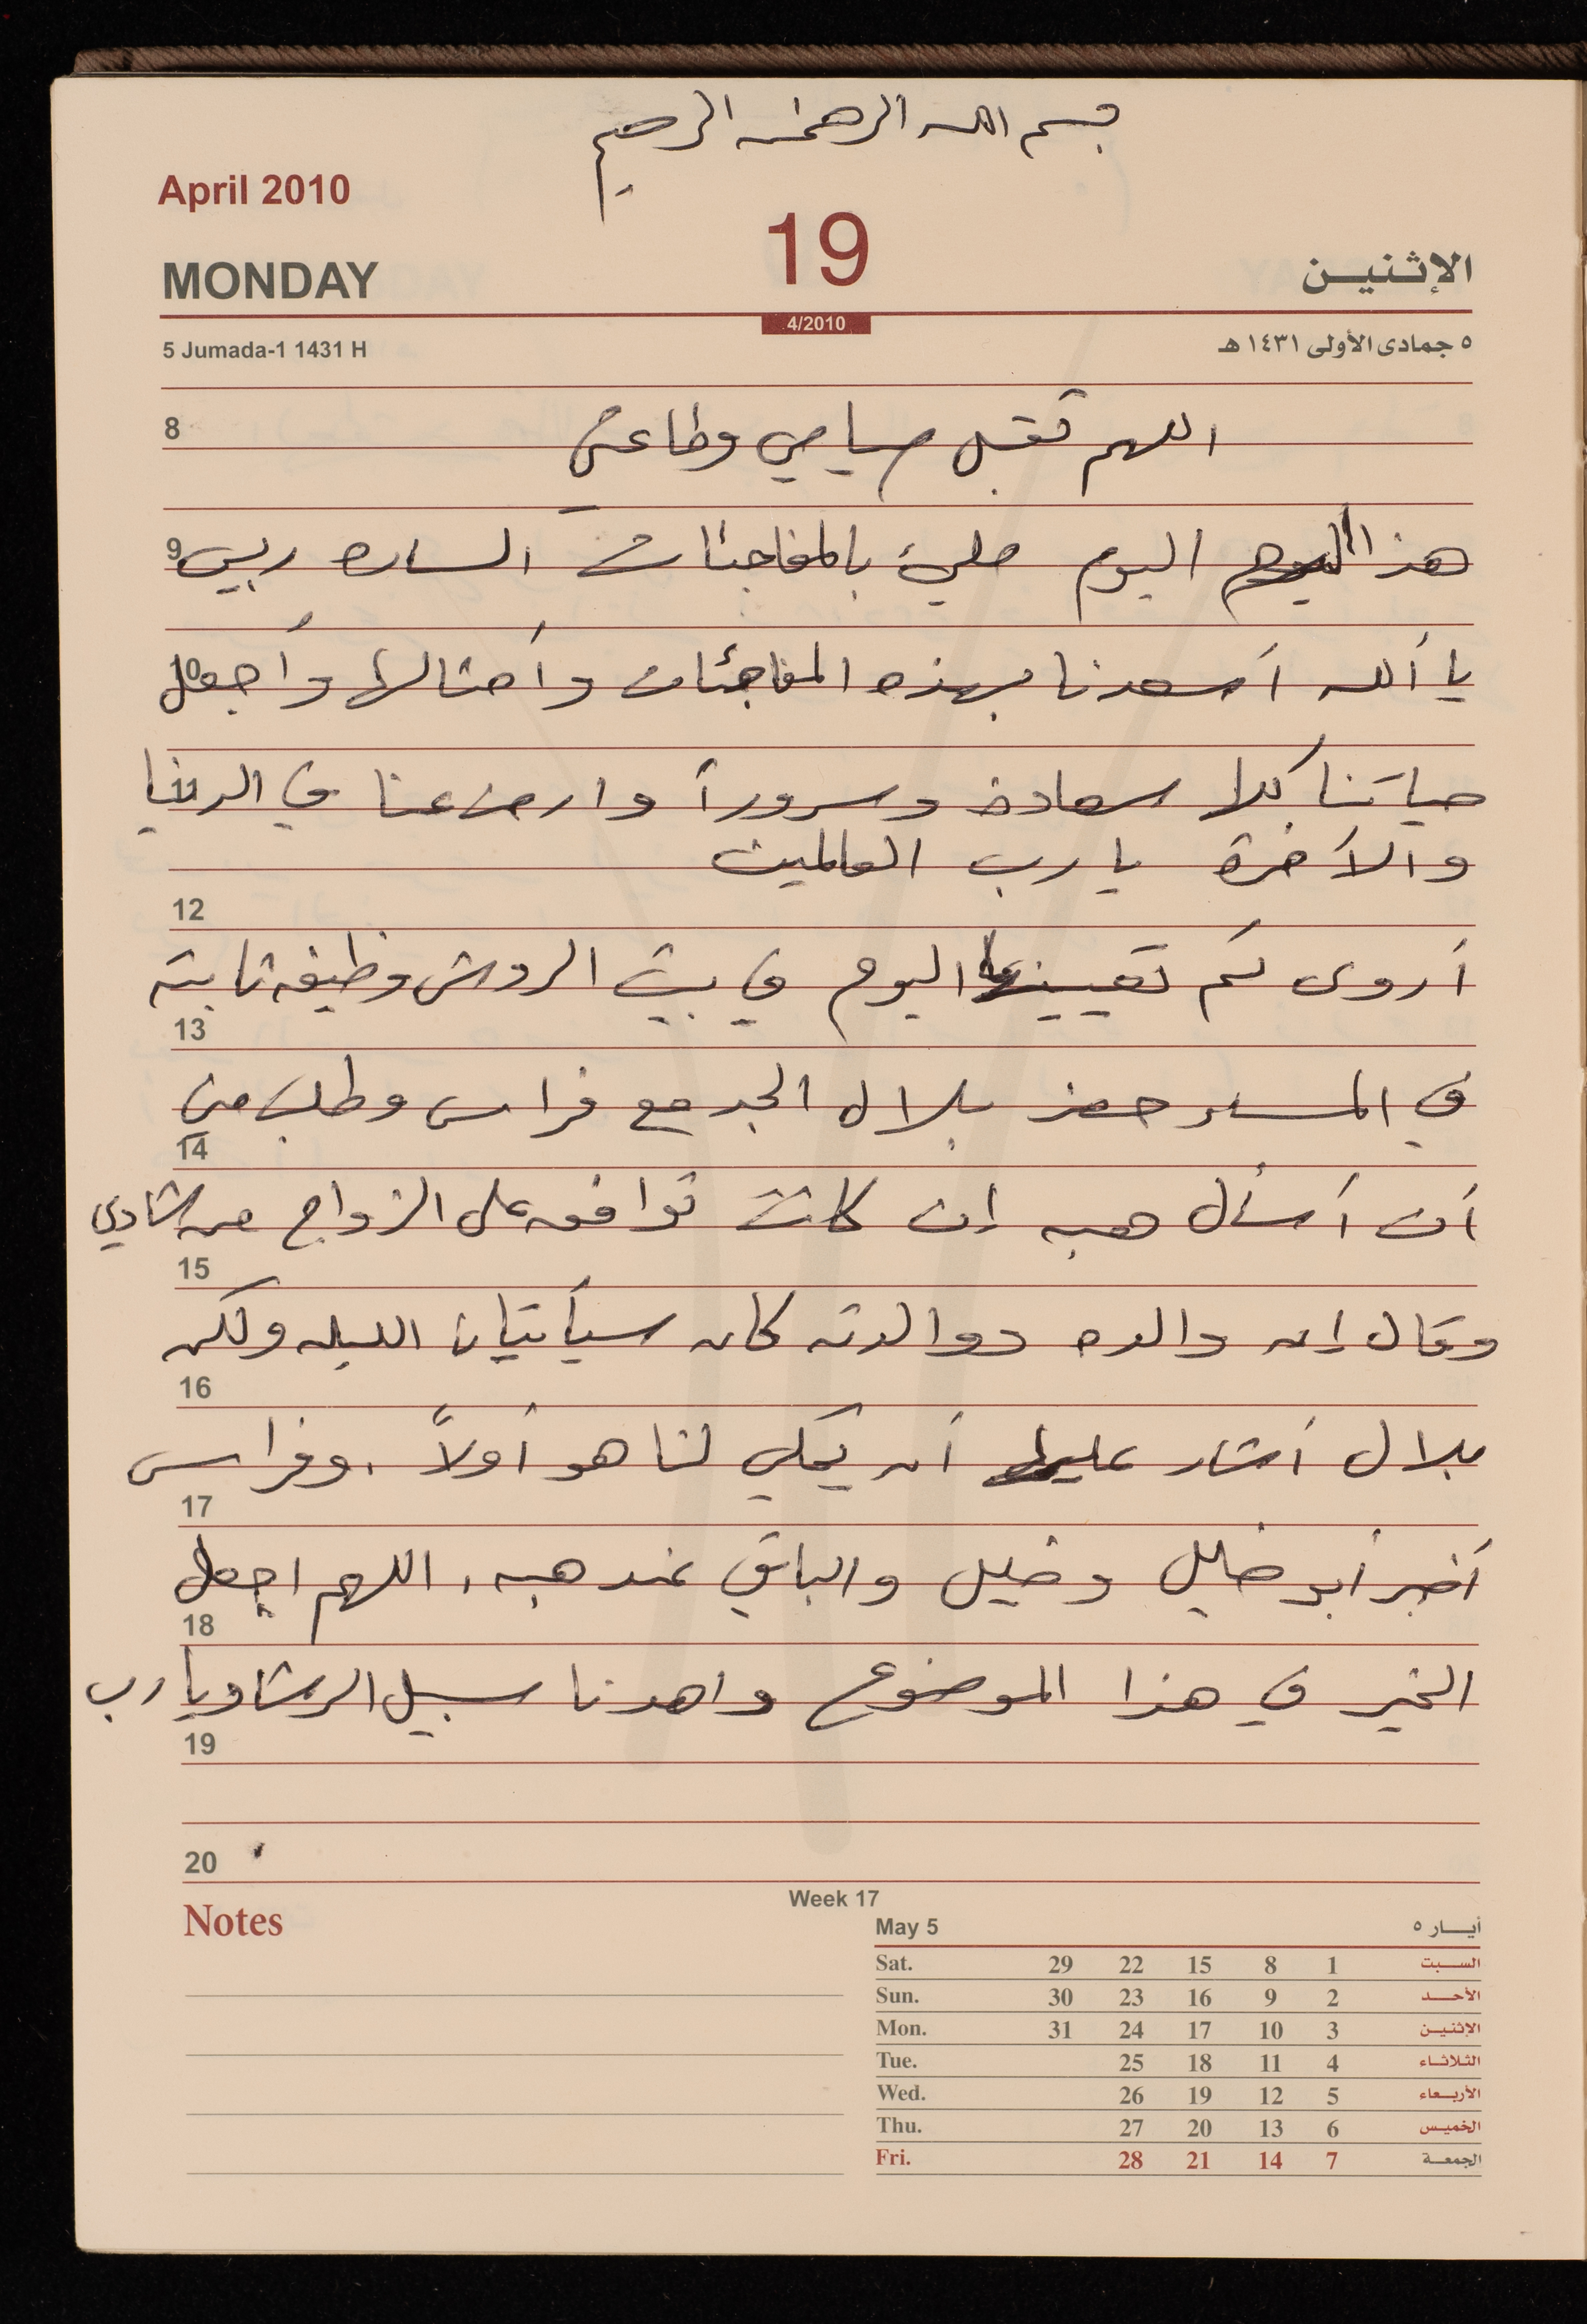 بسم الله الرحمن الرحيم
April 2010
19
MONDAY
الإثنين
4/2010
5 Jumada-1 1431 H
٥ جمادى الأولى ١٤٣١ هـ
8
اللهم تقبل صيامي وطاعتي
9
هذا اليوم مليئ بالمفاجئات الساره ربي
10
يا ألله أسعدنا بهذه المفاجئات وأمثالها وأجعل
11
حياتنا كلا سعادة وسروراً وارض عنا في الدنيا
والآخرة يا رب العالمين
12
أروى تم تعيينها اليوم في بيت الروش وظيفه ثابته
13
في المساء حضر بلال الجد مع فراس وطلب مني
14
أن أسأل هبه إن كانت توافق على الزواج من شادي
15
وقال إن والده ووالدته كان سيأتيان الليله ولكن
16
بلال أشار عليه أن يحكي لنا هو أولاً . وفراس
17
أخبر أبو خليل وخليل والباقي عند هبه . اللهم اجعل
18
الخير في هذا الموضوع واهدنا سبيل الرشاد يا رب
19
20
Notes
Week 17
May 5
أيـــار ٥
Sat. 29 22 15 8 1 السبت
Sun. 30 23 16 9 2 الأحد
Mon. 31 24 17 10 3 الإثنين
Tue. 25 18 11 4 الثلاثاء
Wed. 26 19 12 5 الأربعاء
Thu. 27 20 13 6 الخميس
Fri. 28 21 14 7 الجمعة